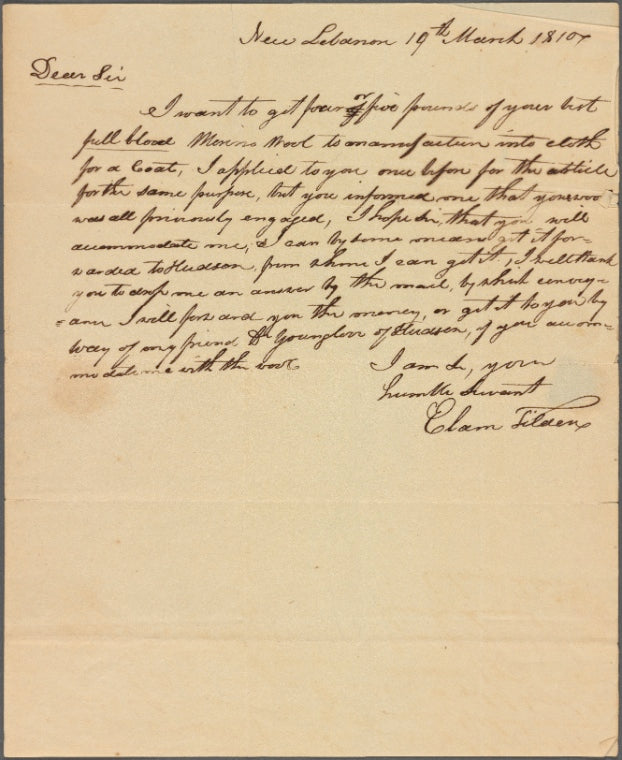 New Lebanon 19th March 1810
Dear Sir
I want to get four or five pounds of your best
full blood Merino Wool to manufacture into cloth
for a Coat, I applied to you once before for the article
for the same purpose, but you informed me that your woo
was all previously engaged, I hope Sir, that you will
accommodate me, & I can by some means get it for=
warded to Hudson, from where I can get it, I will thank
you to drop me an answer by the mail, by which convey=
=ance I will forward you the money, or get it to you by
way of my friend Dr Younglove of Hudson, if you accom=
modate me with the wool
I am Sir, your
humble Servant
Elam Tilden